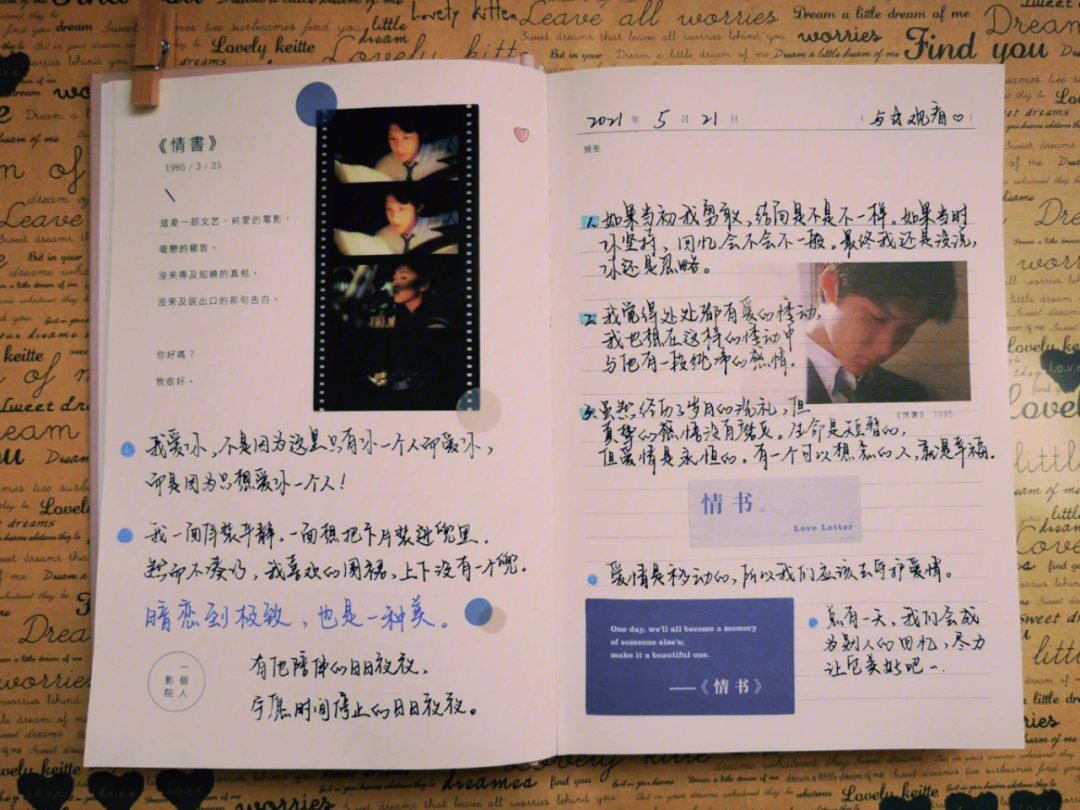 《情書》
1995 / 3 / 25
這是一部文艺、純愛的電影。
暗戀的極致。
沒來得及知曉的真相，
沒來及說出口的那句告白。
你好嗎？
我很好。
我爱你，不是因为这里只有你一个人而爱你，
而是因为只想爱你一个人！
我一面佯装平静，一面想把卡片装进兜里。
然而不凑巧，我喜欢的围裙，上下没有一个兜。
暗恋到极致，也是一种美。
一個
影人
院
有他陪伴的日日夜夜，
宁愿时间停止的日日夜夜。
2021 年 5 月 21 日
观看♡
摘要
1. 如果当初我勇敢，结局是不是不一样。如果当时
你坚持，回忆会不会不一般。最终我还是没说，
你还是忽略。
2. 我觉得处处都有爱的悸动，
我也想在这样的悸动中
与他有一段纯净的感情。
3. 虽然经历了岁月的洗礼，但
真挚的感情没有磨灭。生命是短暂的，
但爱情是永恒的。有一个可以想念的人，就是幸福。
《情書》 1995
情书
Love Letter
爱情是被动的，所以我们应该去守护爱情。
One day, we'll all become a memory
of someone else's;
make it a beautiful one.
——《情书》
总有一天，我们会成
为别人的回忆，尽力
让它美好吧～
Lovely kitten
Leave all worries
Dream a little dream of me
Find you
Lovely keitte